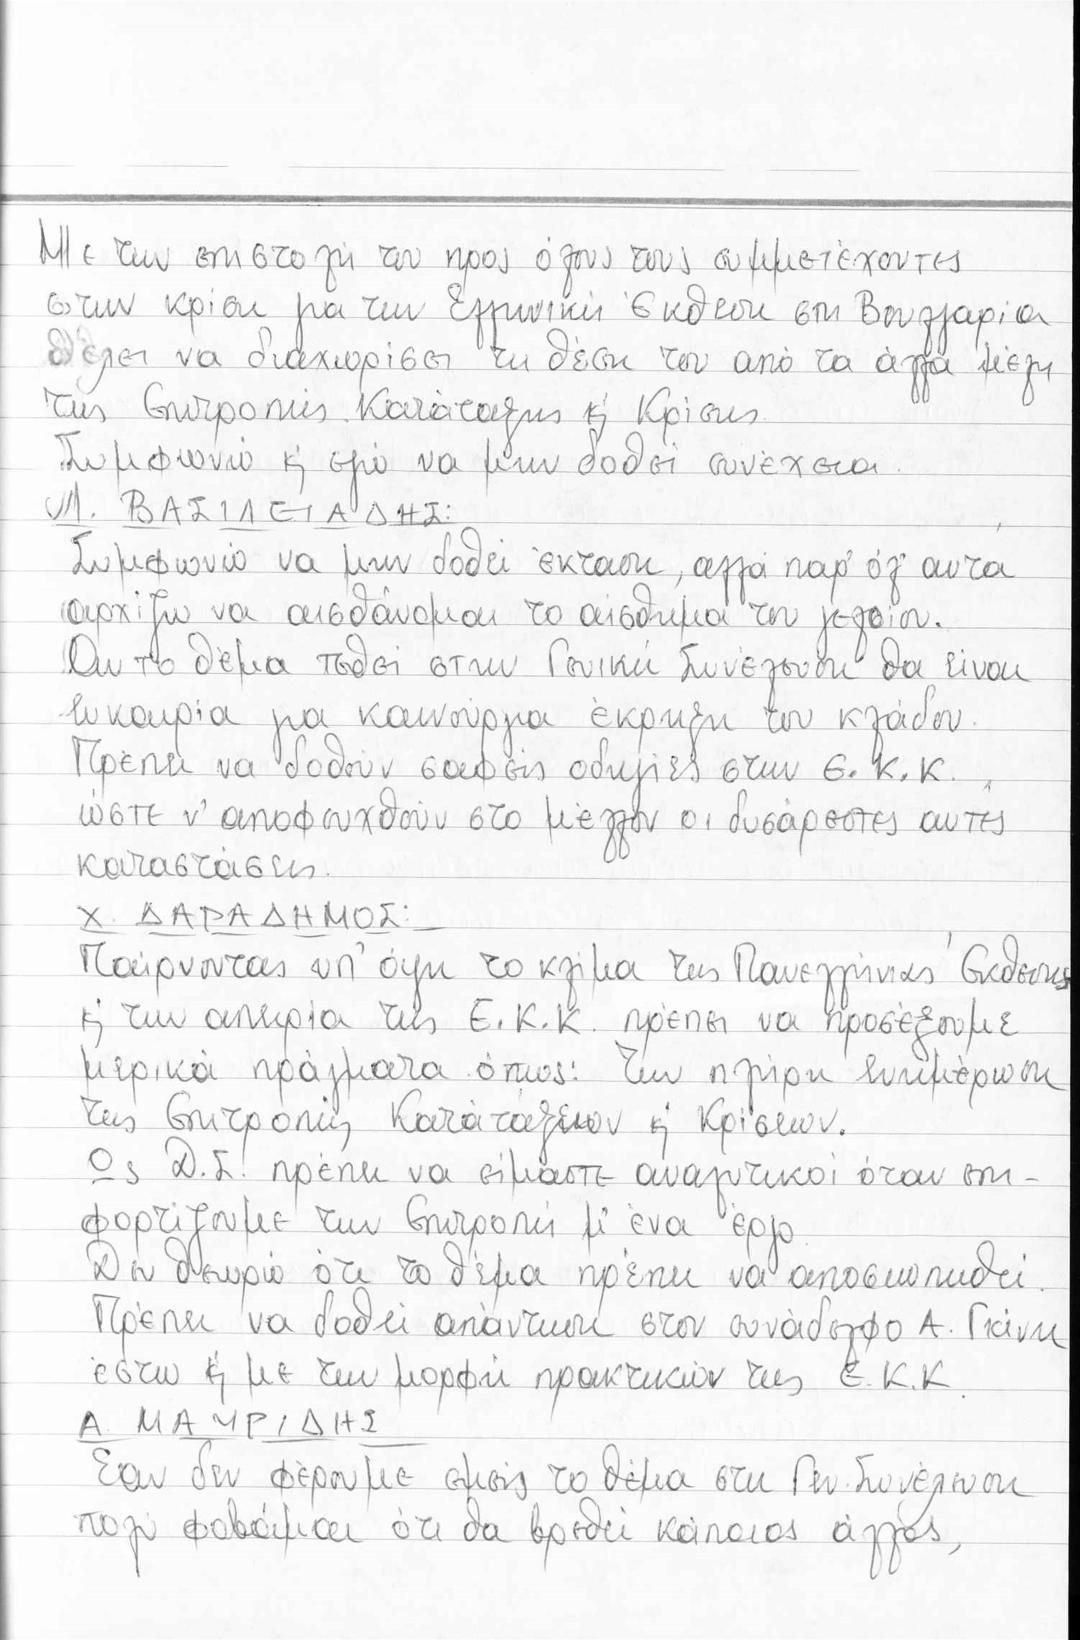 Με την επιστολή του προς όλους τους συμμετέχοντες
στην κρίση για την Ελληνική Έκθεση στη Βουλγαρία
θέλει να διαχωρίσει τη θέση του από τα άλλα μέλη
της Επιτροπής Κατάταξης κ' Κρίσης.
Συμφωνώ κ' εγώ να μην δοθεί συνέχεια.
Μ. ΒΑΣΙΛΕΙΑΔΗΣ:
Συμφωνώ να μην δοθεί έκταση, αλλά παρ' όλ' αυτά
αρχίζω να αισθάνομαι το αίσθημα του γελοίου.
Αν το θέμα τεθεί στην Γενική Συνέλευση θα είναι
ευκαιρία για καινούργια έκρηξη του κλάδου.
Πρέπει να δοθούν σαφείς οδηγίες στην Ε.Κ.Κ.
ώστε ν' αποφευχθούν στο μέλλον οι δυσάρεστες αυτές
καταστάσεις.
Χ. ΔΑΡΑΔΗΜΟΣ:
Παίρνοντας υπ' όψη το κλίμα της Πανελλήνιας Έκθεσης
κ' την απειρία της Ε.Κ.Κ. πρέπει να προσέξουμε
μερικά πράγματα όπως: Την πλήρη ενημέρωση
της Επιτροπής Κατατάξεων κ' Κρίσεων.
Ως Δ.Σ. πρέπει να είμαστε αναλυτικοί όταν επι-
φορτίζουμε την Επιτροπή μ' ένα έργο.
Δεν θεωρώ ότι το θέμα πρέπει να αποσιωπηθεί.
Πρέπει να δοθεί απάντηση στον συνάδελφο Α. Γιάννη
έστω κ' με την μορφή πρακτικών της Ε.Κ.Κ.
Α. ΜΑΥΡΙΔΗΣ
Εάν δεν φέρουμε εμείς το θέμα στη Γεν. Συνέλευση
πολύ φοβάμαι ότι θα βρεθεί κάποιος άλλος,